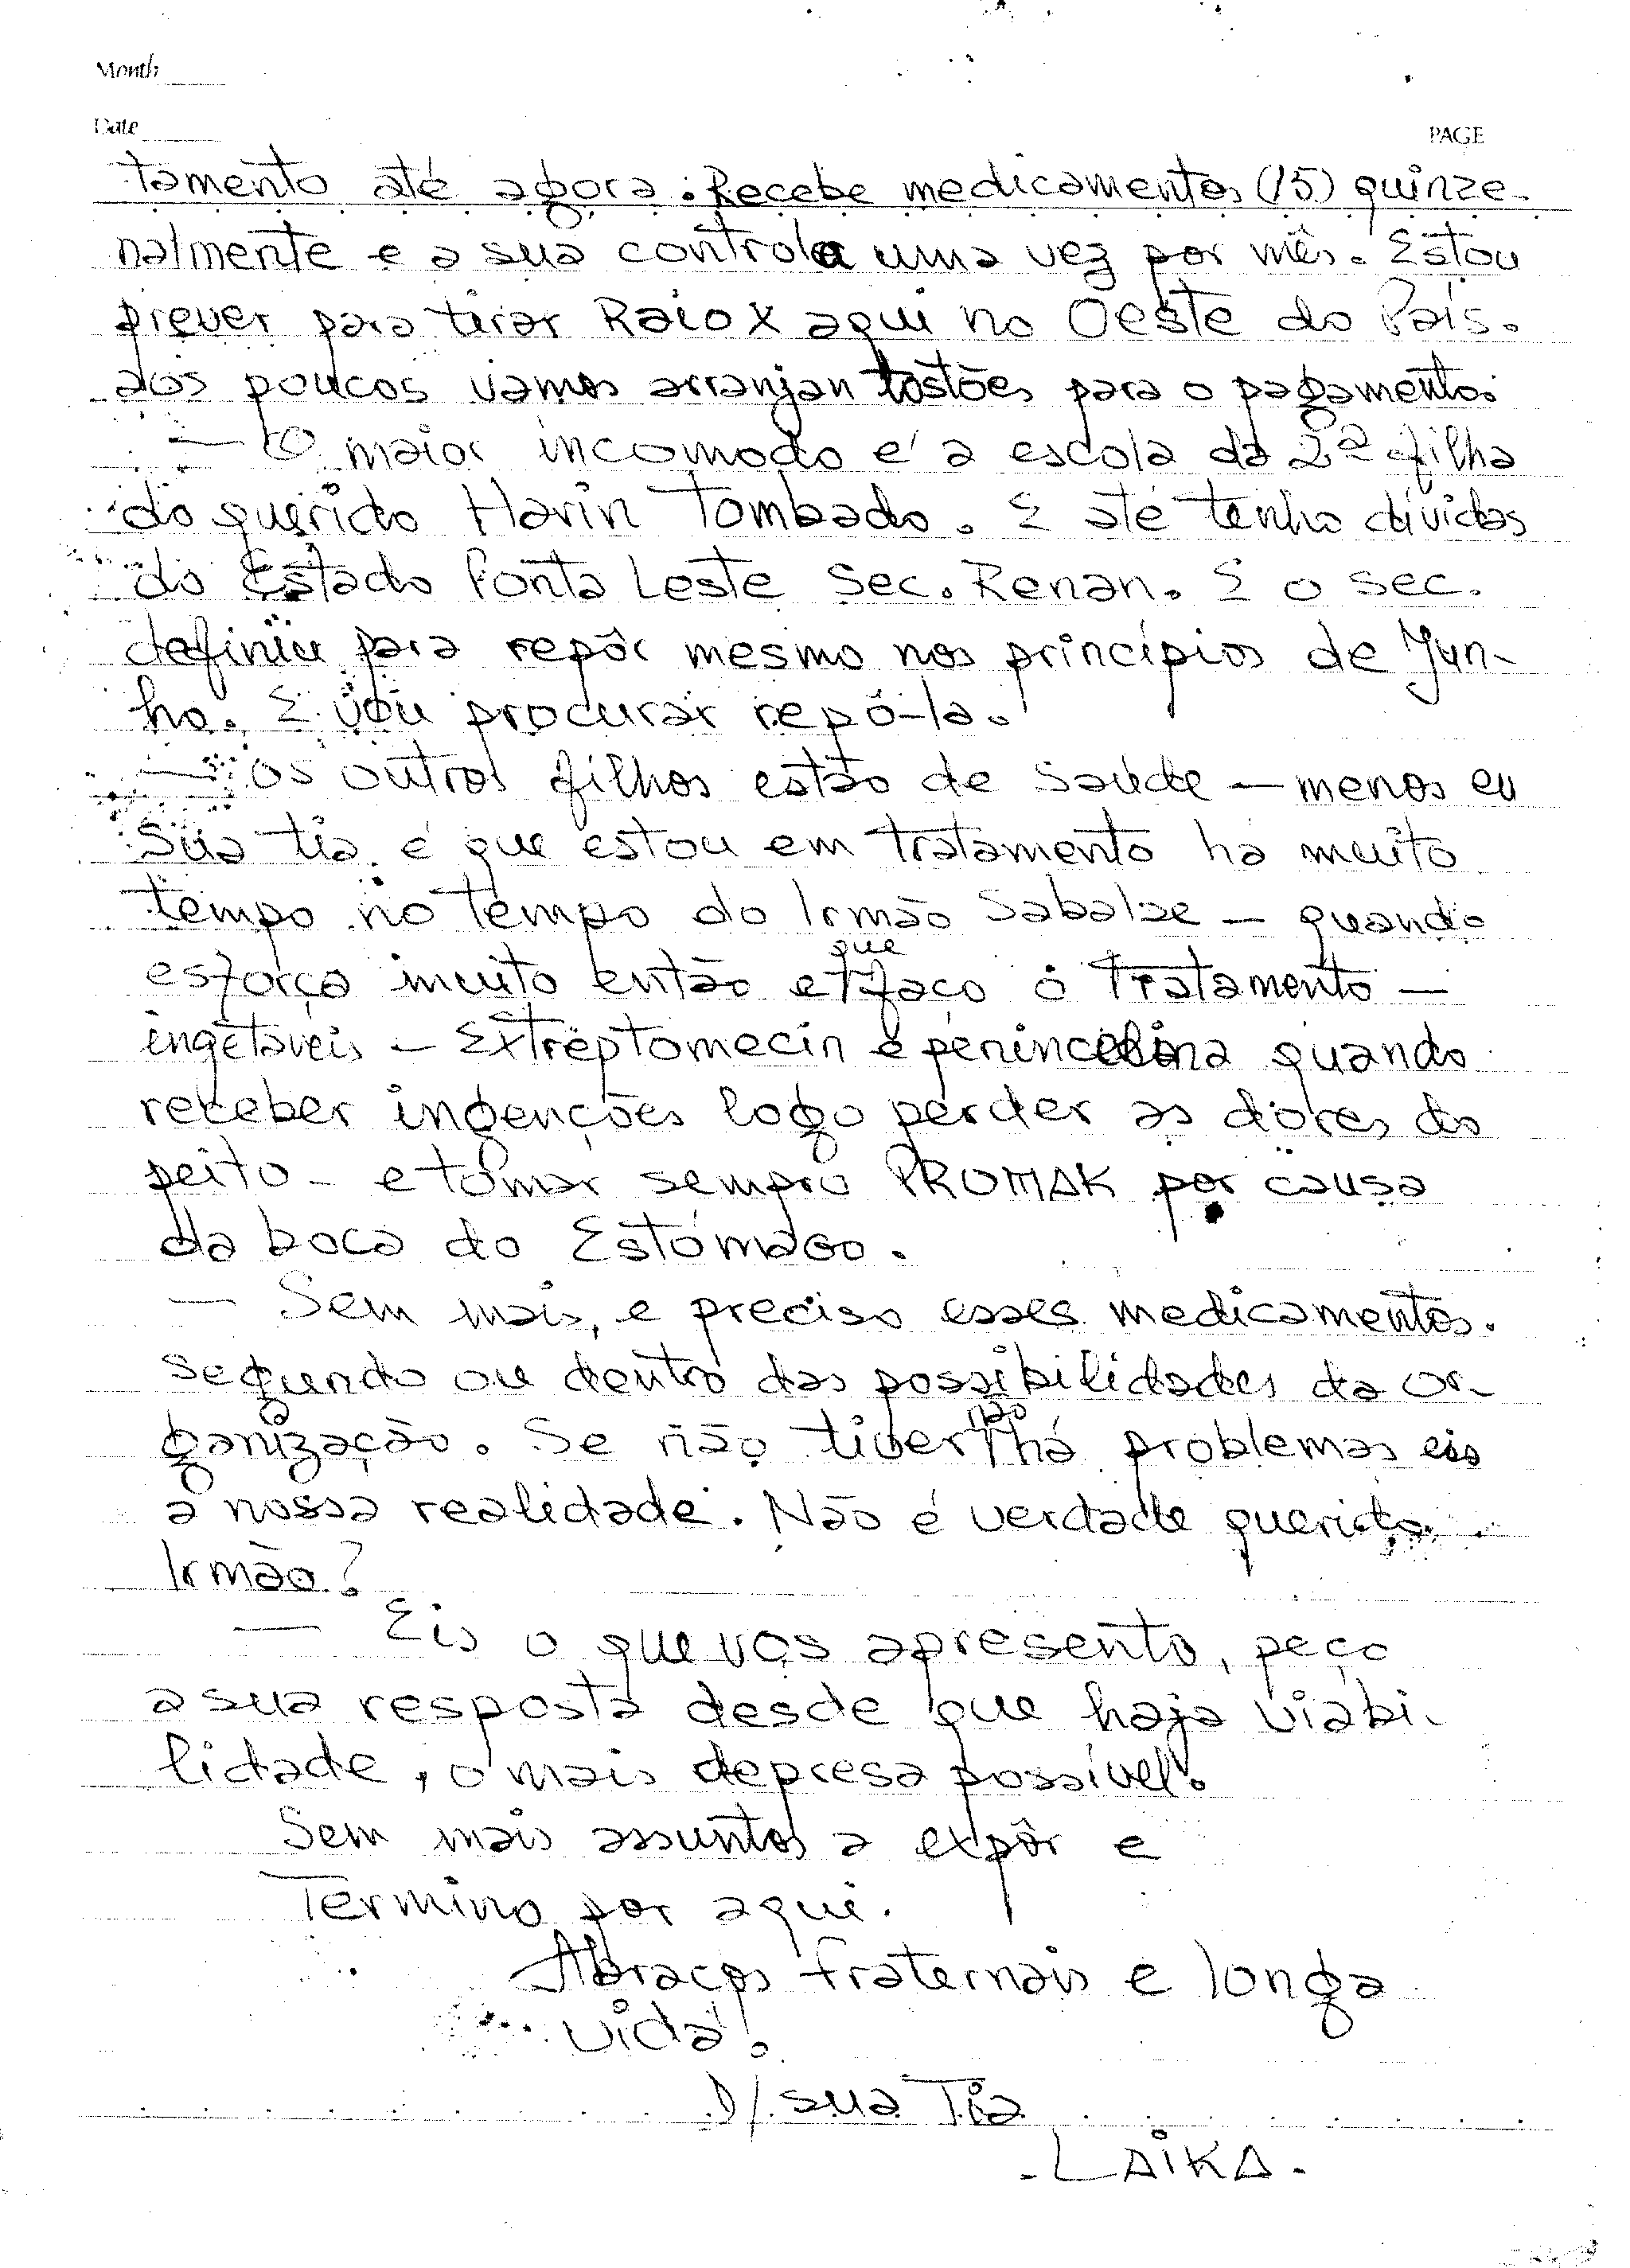 Month
Date
PAGE
tamento até agora. Recebe medicamentos (15) quinze-
nalmente e a sua controla uma vez por mês. Estou
prever para tirar Raio X aqui no Oeste do País.
aos poucos vamos arranjan tostões para o pagamento.
— O maior incomodo é a escola da 2ª filha
do querido Havin Tombado. E até tenho dívidas
do Estado Ponta Leste Sec. Renan. E o sec.
definiu para repôr mesmo nos princípios de Jun-
ho. E vou procurar repô-la.
— os outros filhos estão de saúde — menos eu
Sua tia é que estou em tratamento ha muito
tempo no tempo do Irmão Sabalae — quando
esforço muito então e que faço o Tratamento —
ingetaveis — Extreptomecin e penincilina quando
receber ingenções logo perder as dores do
peito - e tomar sempre PROMAK por causa
da boca do Estómago.
— Sem mais, e preciso esses medicamentos.
segundo ou dentro das possibilidades da or-
ganização. Se não tiver não há problemas eis
a nossa realidade. Não é verdade querido
Irmão?
— Eis o que vos apresento, peço
a sua resposta desde que haja viabi-
lidade, o mais depresa possível.
Sem mais assuntos a expôr e
Termino por aqui.
Abraços fraternais e longa
vida!
D/ sua Tia
- LAIKA.